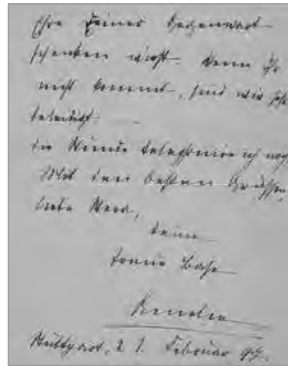 Ehre Deiner Gegenwart
schenken wirst. Wenn Ihr
nicht kommt, sind wir sehr
beleidigt.
die Stunde telegraphire ich noch
Mit den besten Grüssen,
liebe Meta,
Deine
treue Base
Stuttgart, 21. Februar 97.